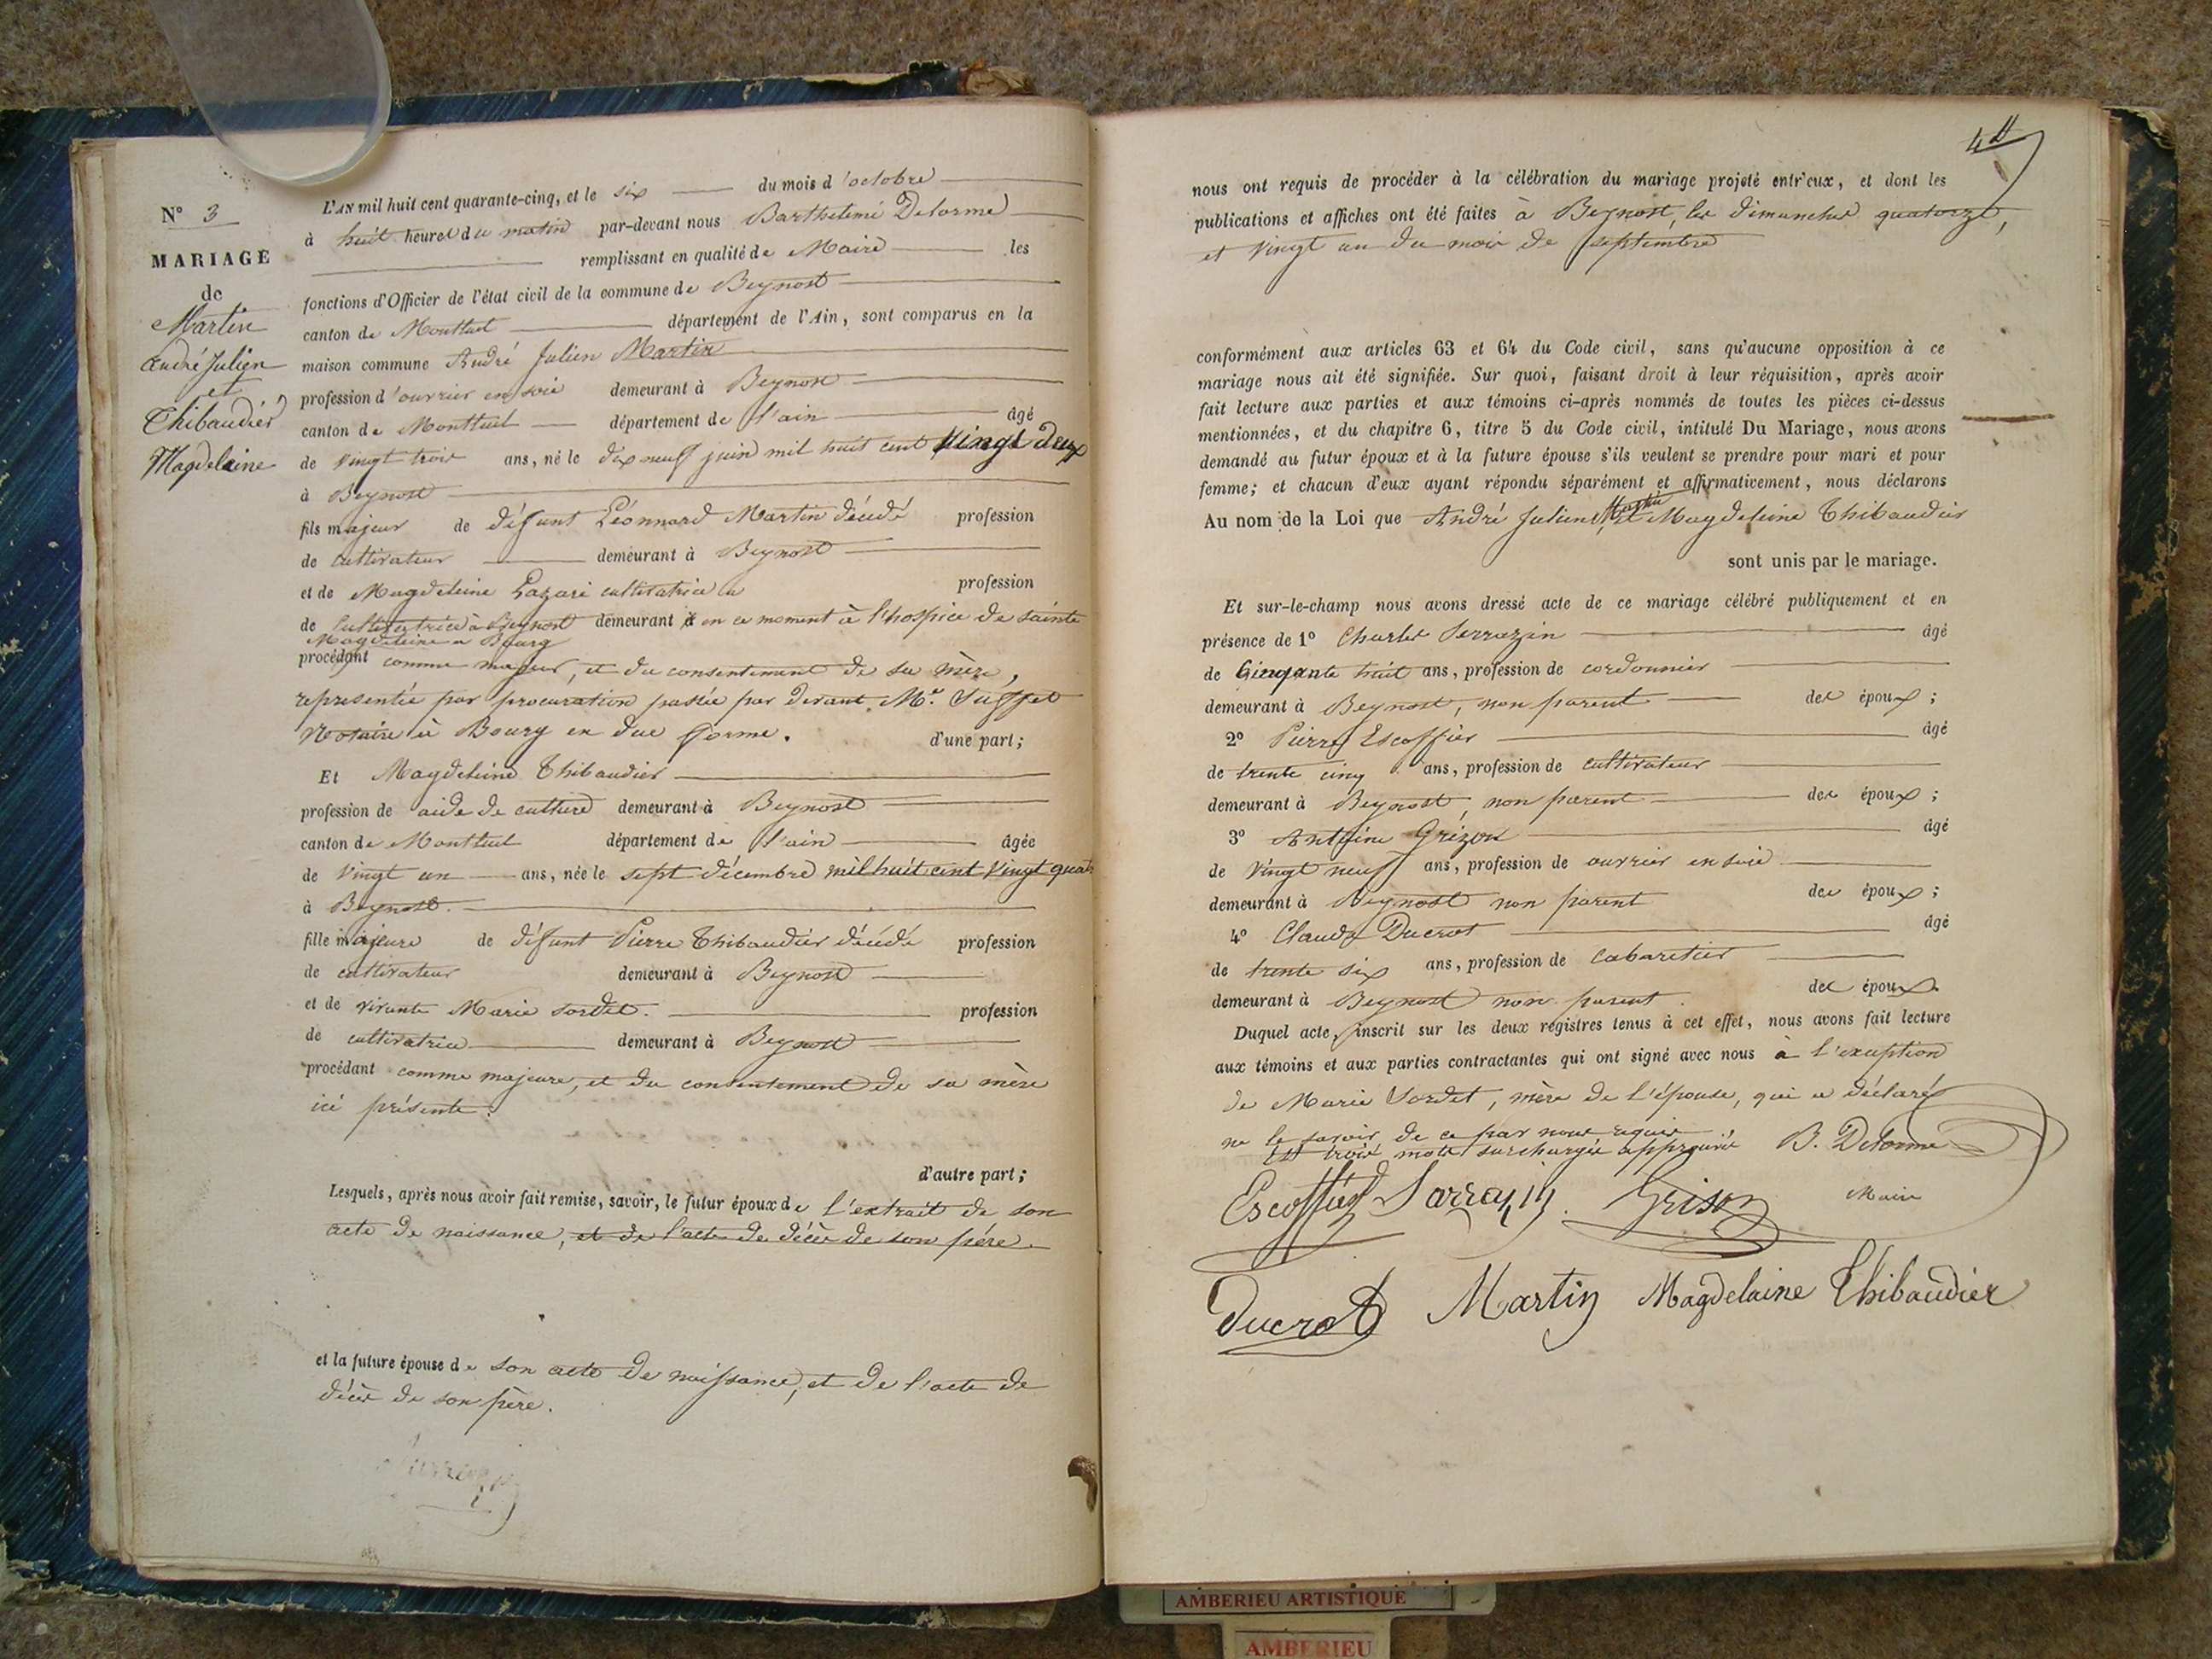 N° 3
MARIAGE
de
Martin
André Julien
et
Thibaudier
Magdelaine
L'AN mil huit cent quarante-cinq, et le six du mois d'octobre
à huit heures du matin par-devant nous Barthelemi Delorme
remplissant en qualité de Maire les
fonctions d'Officier de l'état civil de la commune de Beynost
canton de Montluel département de l'Ain, sont comparus en la
maison commune André Julien Martin
profession d'ouvrier en soie demeurant à Beynost
canton de Montluel département de l'ain âgé
de vingt trois ans, né le dix neuf juin mil huit cent vingt deux
à Beynost
fils majeur de défunt Léonnard Martin décédé profession
de cultivateur demeurant à Beynost
et de Magdeleine Lazari cultivatrice profession
de cultivatrice à Beynost demeurant en ce moment à l'hospice de sainte
Magdeleine a Bourg
procédant comme majeur, et du consentement de sa mère,
representée par procuration passée par devant Mr.
Notaire à Bourg en due forme. d'une part;
Et Magdeleine Thibaudier
profession de aide de culture demeurant à Beynost
canton de Montluel département de l'ain âgée
de vingt un ans, née le sept décembre mil huit cent vingt quatre
à Beynost.
fille majeure de défunt Pierre Thibaudier décédé profession
de cultivateur demeurant à Beynost
et de vivante Marie Sordet. profession
de cultivatrice demeurant à Beynost
procédant comme majeure, et du consentement de sa mère
ici présente.
d'autre part;
Lesquels, après nous avoir fait remise, savoir, le futur époux de l'extrait de son
acte de naissance, et de l'acte de décès de son père.
et la future épouse de son acte de naissance, et de l'acte de
décès de son père.
nous ont requis de procéder à la célébration du mariage projeté entr'eux, et dont les
publications et affiches ont été faites à Beynost, les dimanches quatorze,
et vingt un du mois de septembre
conformément aux articles 63 et 64 du Code civil, sans qu'aucune opposition à ce
mariage nous ait été signifiée. Sur quoi, faisant droit à leur réquisition, après avoir
fait lecture aux parties et aux témoins ci-après nommés de toutes les pièces ci-dessus
mentionnées, et du chapitre 6, titre 5 du Code civil, intitulé Du Mariage, nous avons
demandé au futur époux et à la future épouse s'ils veulent se prendre pour mari et pour
femme; et chacun d'eux ayant répondu séparément et affirmativement, nous déclarons
Au nom de la Loi que André Julien Martin et Magdeleine Thibaudier
sont unis par le mariage.
Et sur-le-champ nous avons dressé acte de ce mariage célébré publiquement et en
présence de 1° Charles Serrazin âgé
de Cinqante huit ans, profession de cordonnier
demeurant à Beynost, non parent des époux;
2° Pierre Escoffier âgé
de trente cinq ans, profession de cultivateur
demeurant à Beynost, non parent des époux;
3° Antoine Grizon âgé
de vingt neuf ans, profession de ouvrier en soie
demeurant à Beynost non parent des époux;
4° Claude Ducrot âgé
de trente six ans, profession de Cabaretier
demeurant à Beynost non parent. des époux.
Duquel acte, inscrit sur les deux registres tenus à cet effet, nous avons fait lecture
aux témoins et aux parties contractantes qui ont signé avec nous à l'exception
de Marie Sordet, mère de l'épouse, qui a déclaré
ne le savoir de ce par nous requise
trois mots surchargés approuvés B. Delorme
Escoffier Sarrazin. Grison Maire
Ducrot Martin Magdelaine Thibaudier
AMBERIEU ARTISTIQUE
AMBERIEU